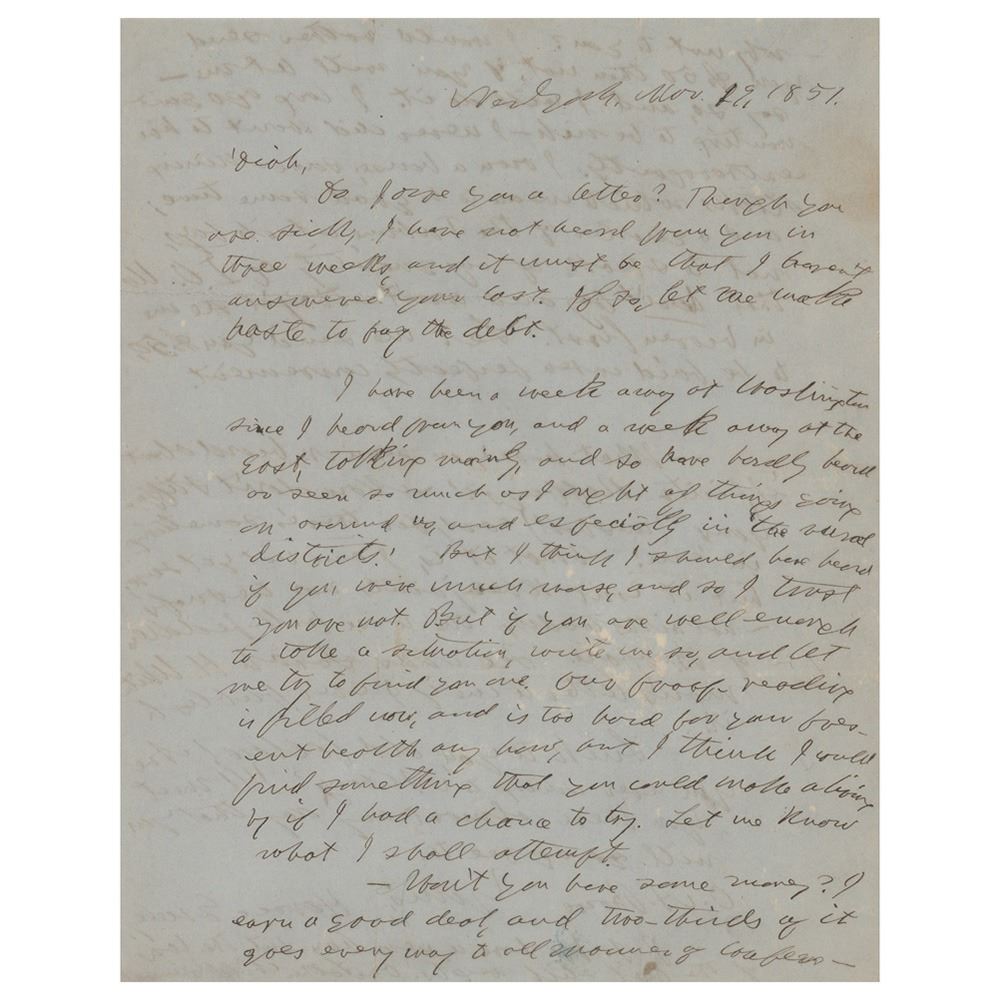 New York, Nov. 19, 1851.
Do I owe you a letter? Though you
are sick, I have not heard from you in
three weeks, and it must be that I haven't
answered your last. If so, let me make
haste to pay the debt.
I have been a week away at Washington
since I heard from you, and a week away at the
East, talking mainly, and so have hardly heard
or seen so much as I ought of things going
on around us, and especially in the rural
districts! But I think I should have heard
if you were much worse, and so I trust
you are not. But if you are well enough
to take a situation, write me so, and let
me try to find you one. Our proof reading
is filled now, and is too hard for your pres-
ent health any how, but I think I could
find something that you could make a living
by if I had a chance to try. Let me know
what I shall attempt.
— Won't you have some money? I
earn a good deal, and two-thirds of it
goes every way to all manner of